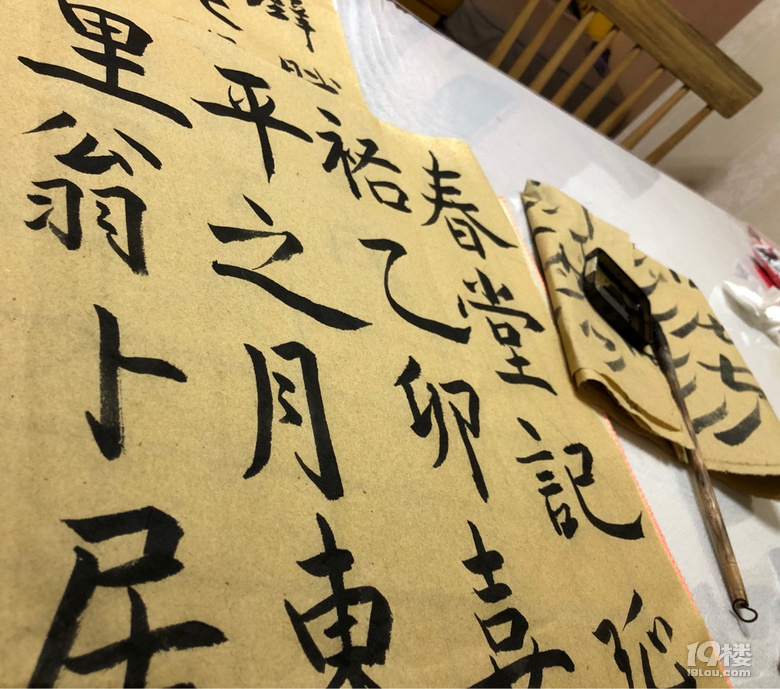 春堂記
裕乙卯喜
平之月東
里翁卜居
19楼
19lou.com